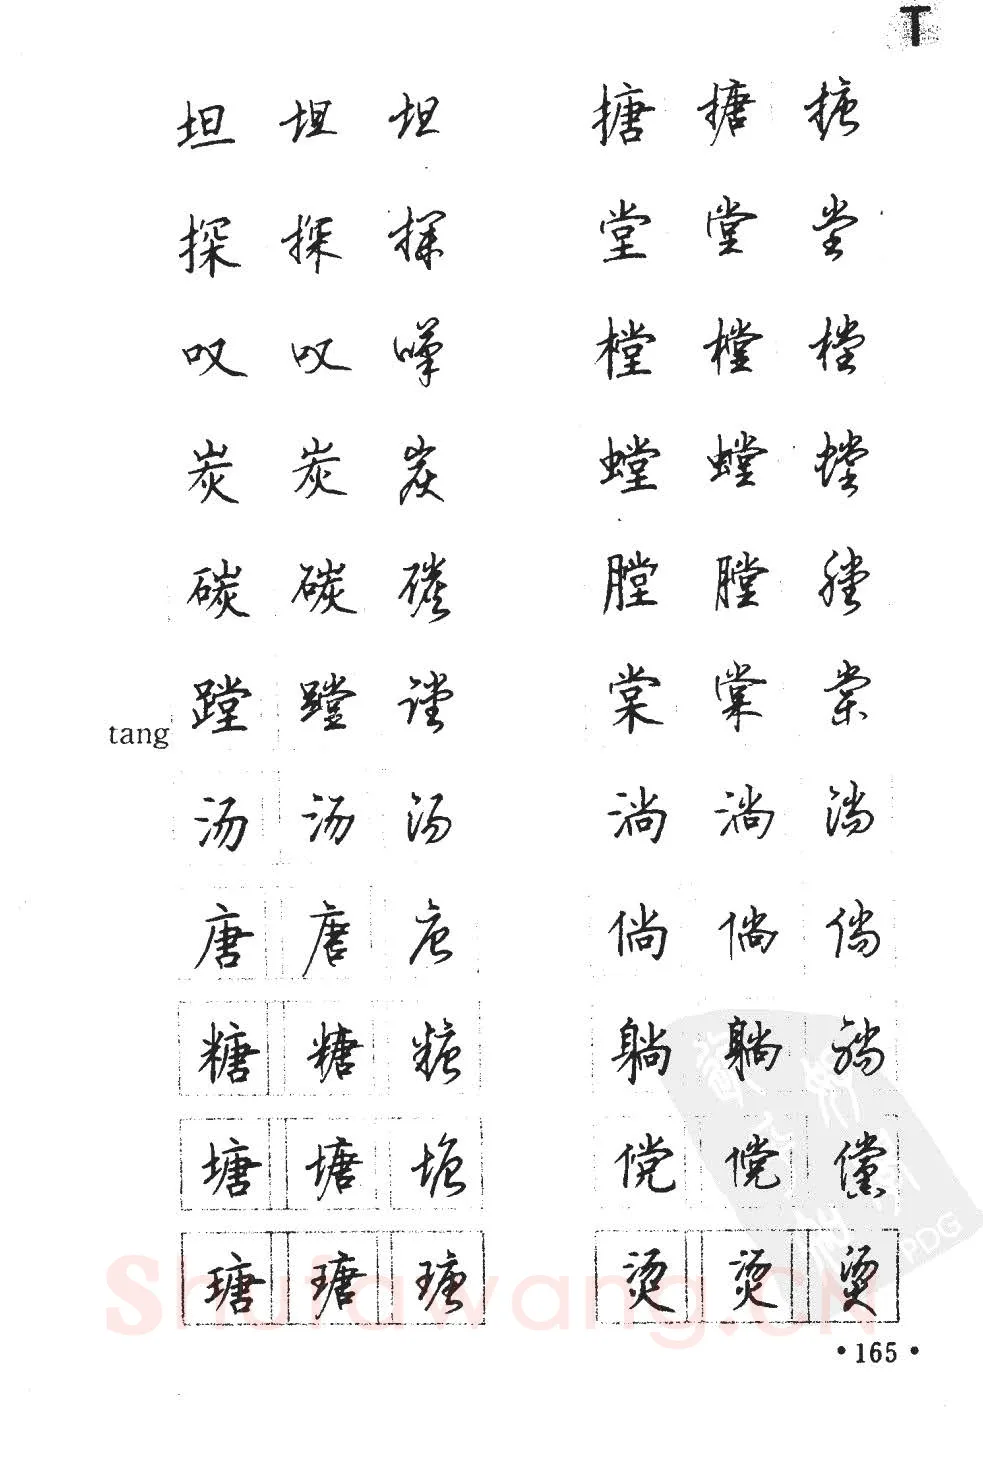 T
坦 坦 坦
探 探 探
叹 叹 嘆
炭 炭 炭
碳 碳 碳
tang 蹚 蹚 蹚
汤 汤 汤
唐 唐 唐
糖 糖 糖
塘 塘 塘
瑭 瑭 瑭
搪 搪 搪
堂 堂 堂
樘 樘 樘
螳 螳 螳
膛 膛 膛
棠 棠 棠
淌 淌 淌
倘 倘 倘
躺 躺 躺
傥 傥 儻
烫 烫 烫
Shufawang.CN
PDG
·165·